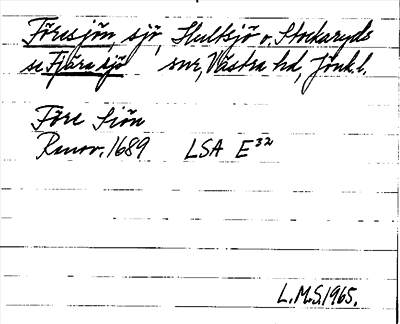 Föresjön, sjö, Hultsjö o. Stockaryds
se Fjäresjö snr, Västra hd, Jönk.l.
Före Siön
Renov. 1689 LSA E³²
L.M.S. 1965.